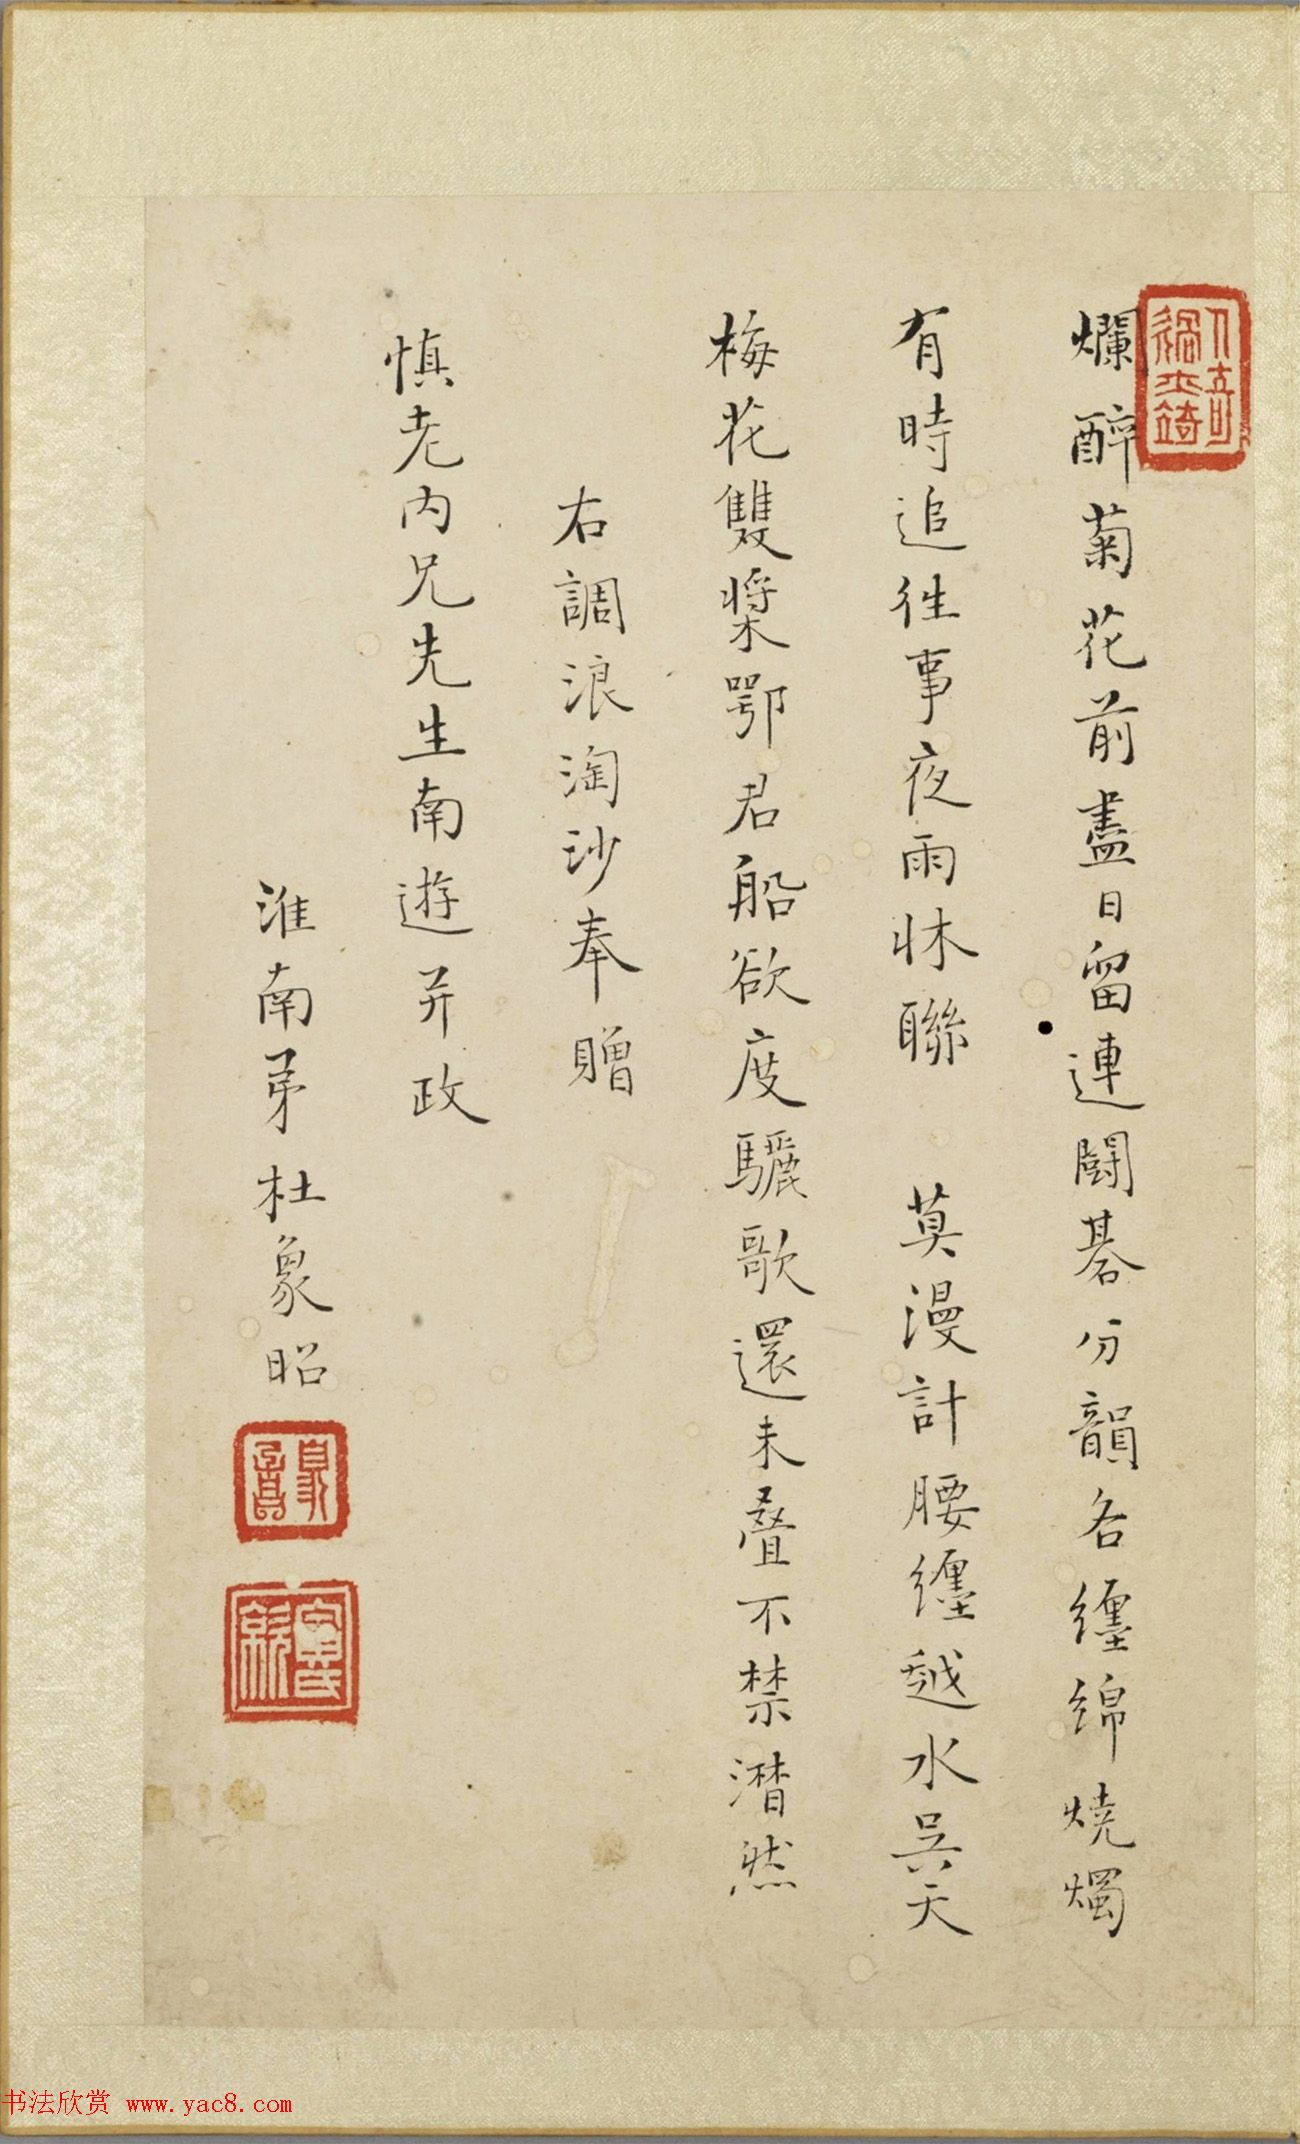 爛醉菊花前盡日留連鬭碁分韻各纏綿燒燭
有時追往事夜雨牀聯　莫漫計腰纏越水吳天
梅花雙槳鄂君船欲度驪歌還未疊不禁潸然
右調浪淘沙奉贈
慎老內兄先生南遊并政
淮南弟杜象昭
书法欣赏 www.yac8.com